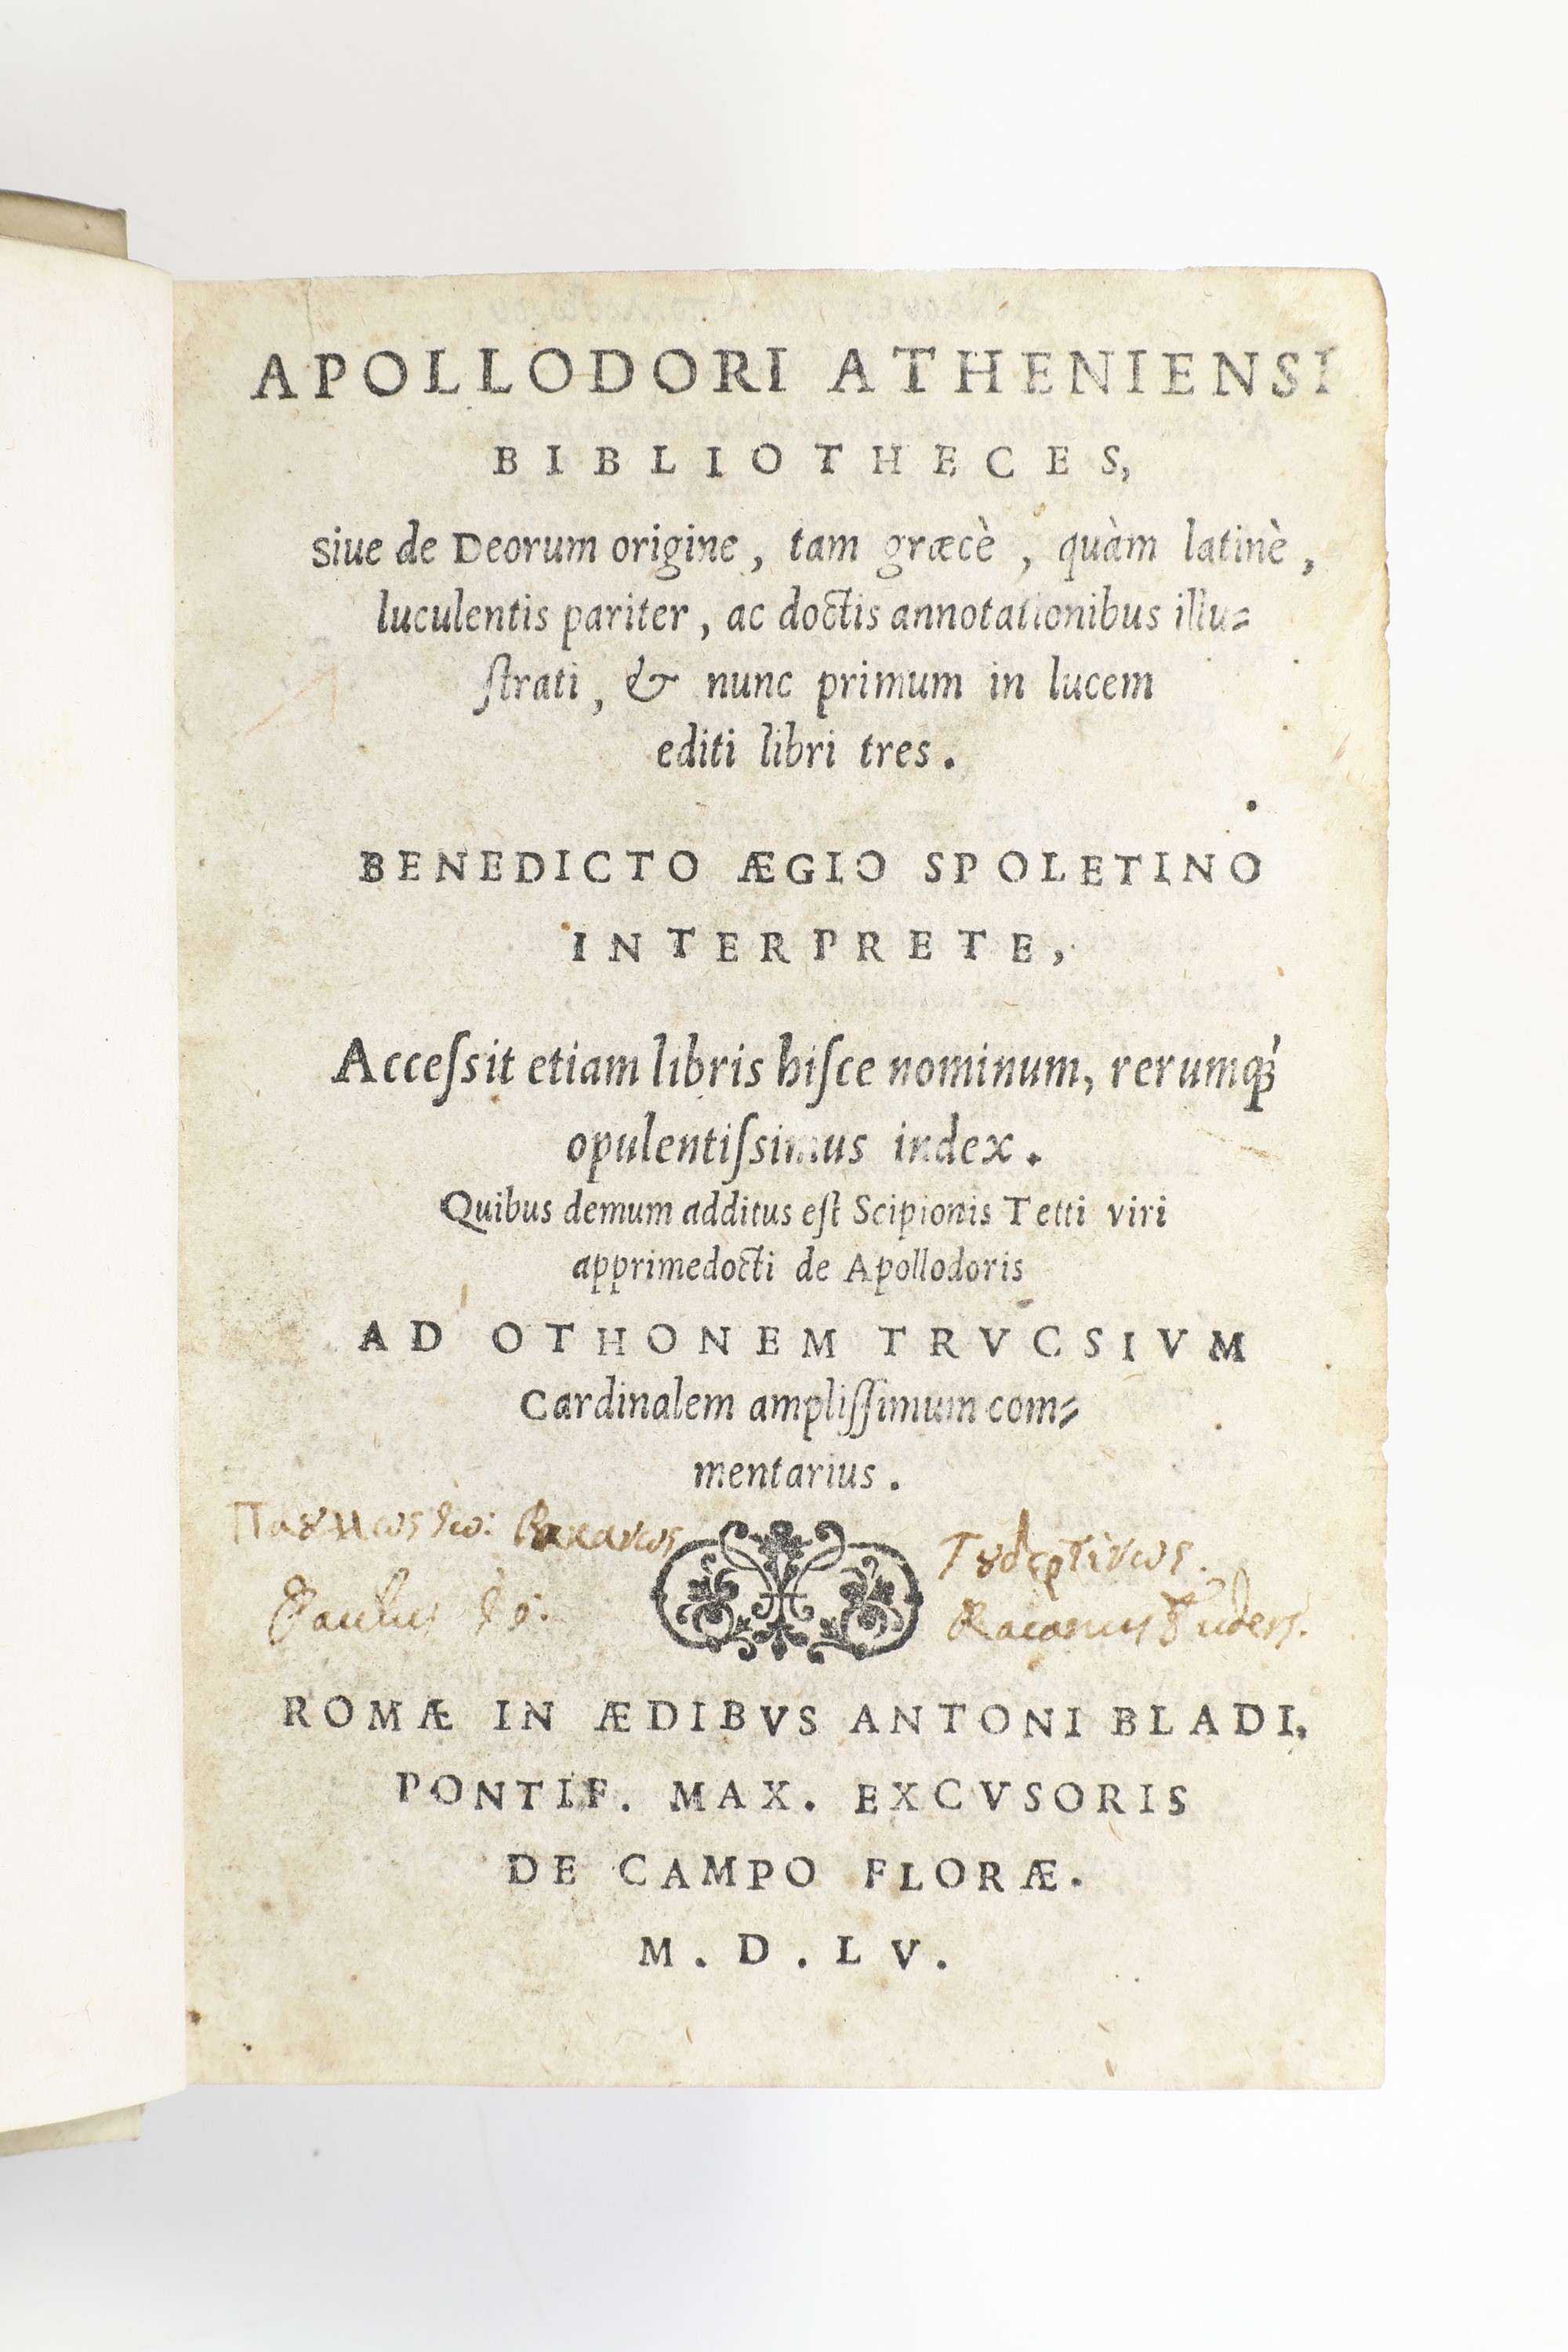 APOLLODORI ATHENIENSI
BIBLIOTHECES,
siue de Deorum origine, tam græcè, quàm latinè,
luculentis pariter, ac doctis annotationibus illu-
ſtrati, & nunc primum in lucem
editi libri tres.
BENEDICTO ÆGIO SPOLETINO
INTERPRETE,
Acceſsit etiam libris hiſce nominum, rerumq́;
opulentiſsimus index.
Quibus demum additus eſt Scipionis Tetti viri
apprimedocti de Apollodoris
AD OTHONEM TRVCSIVM
Cardinalem ampliſſimum com-
mentarius.
Τȣδερτίνως.
Paulus
Racanus Tuders.
ROMÆ IN ÆDIBVS ANTONI BLADI,
PONTIF. MAX. EXCVSORIS
DE CAMPO FLORÆ.
M. D. LV.